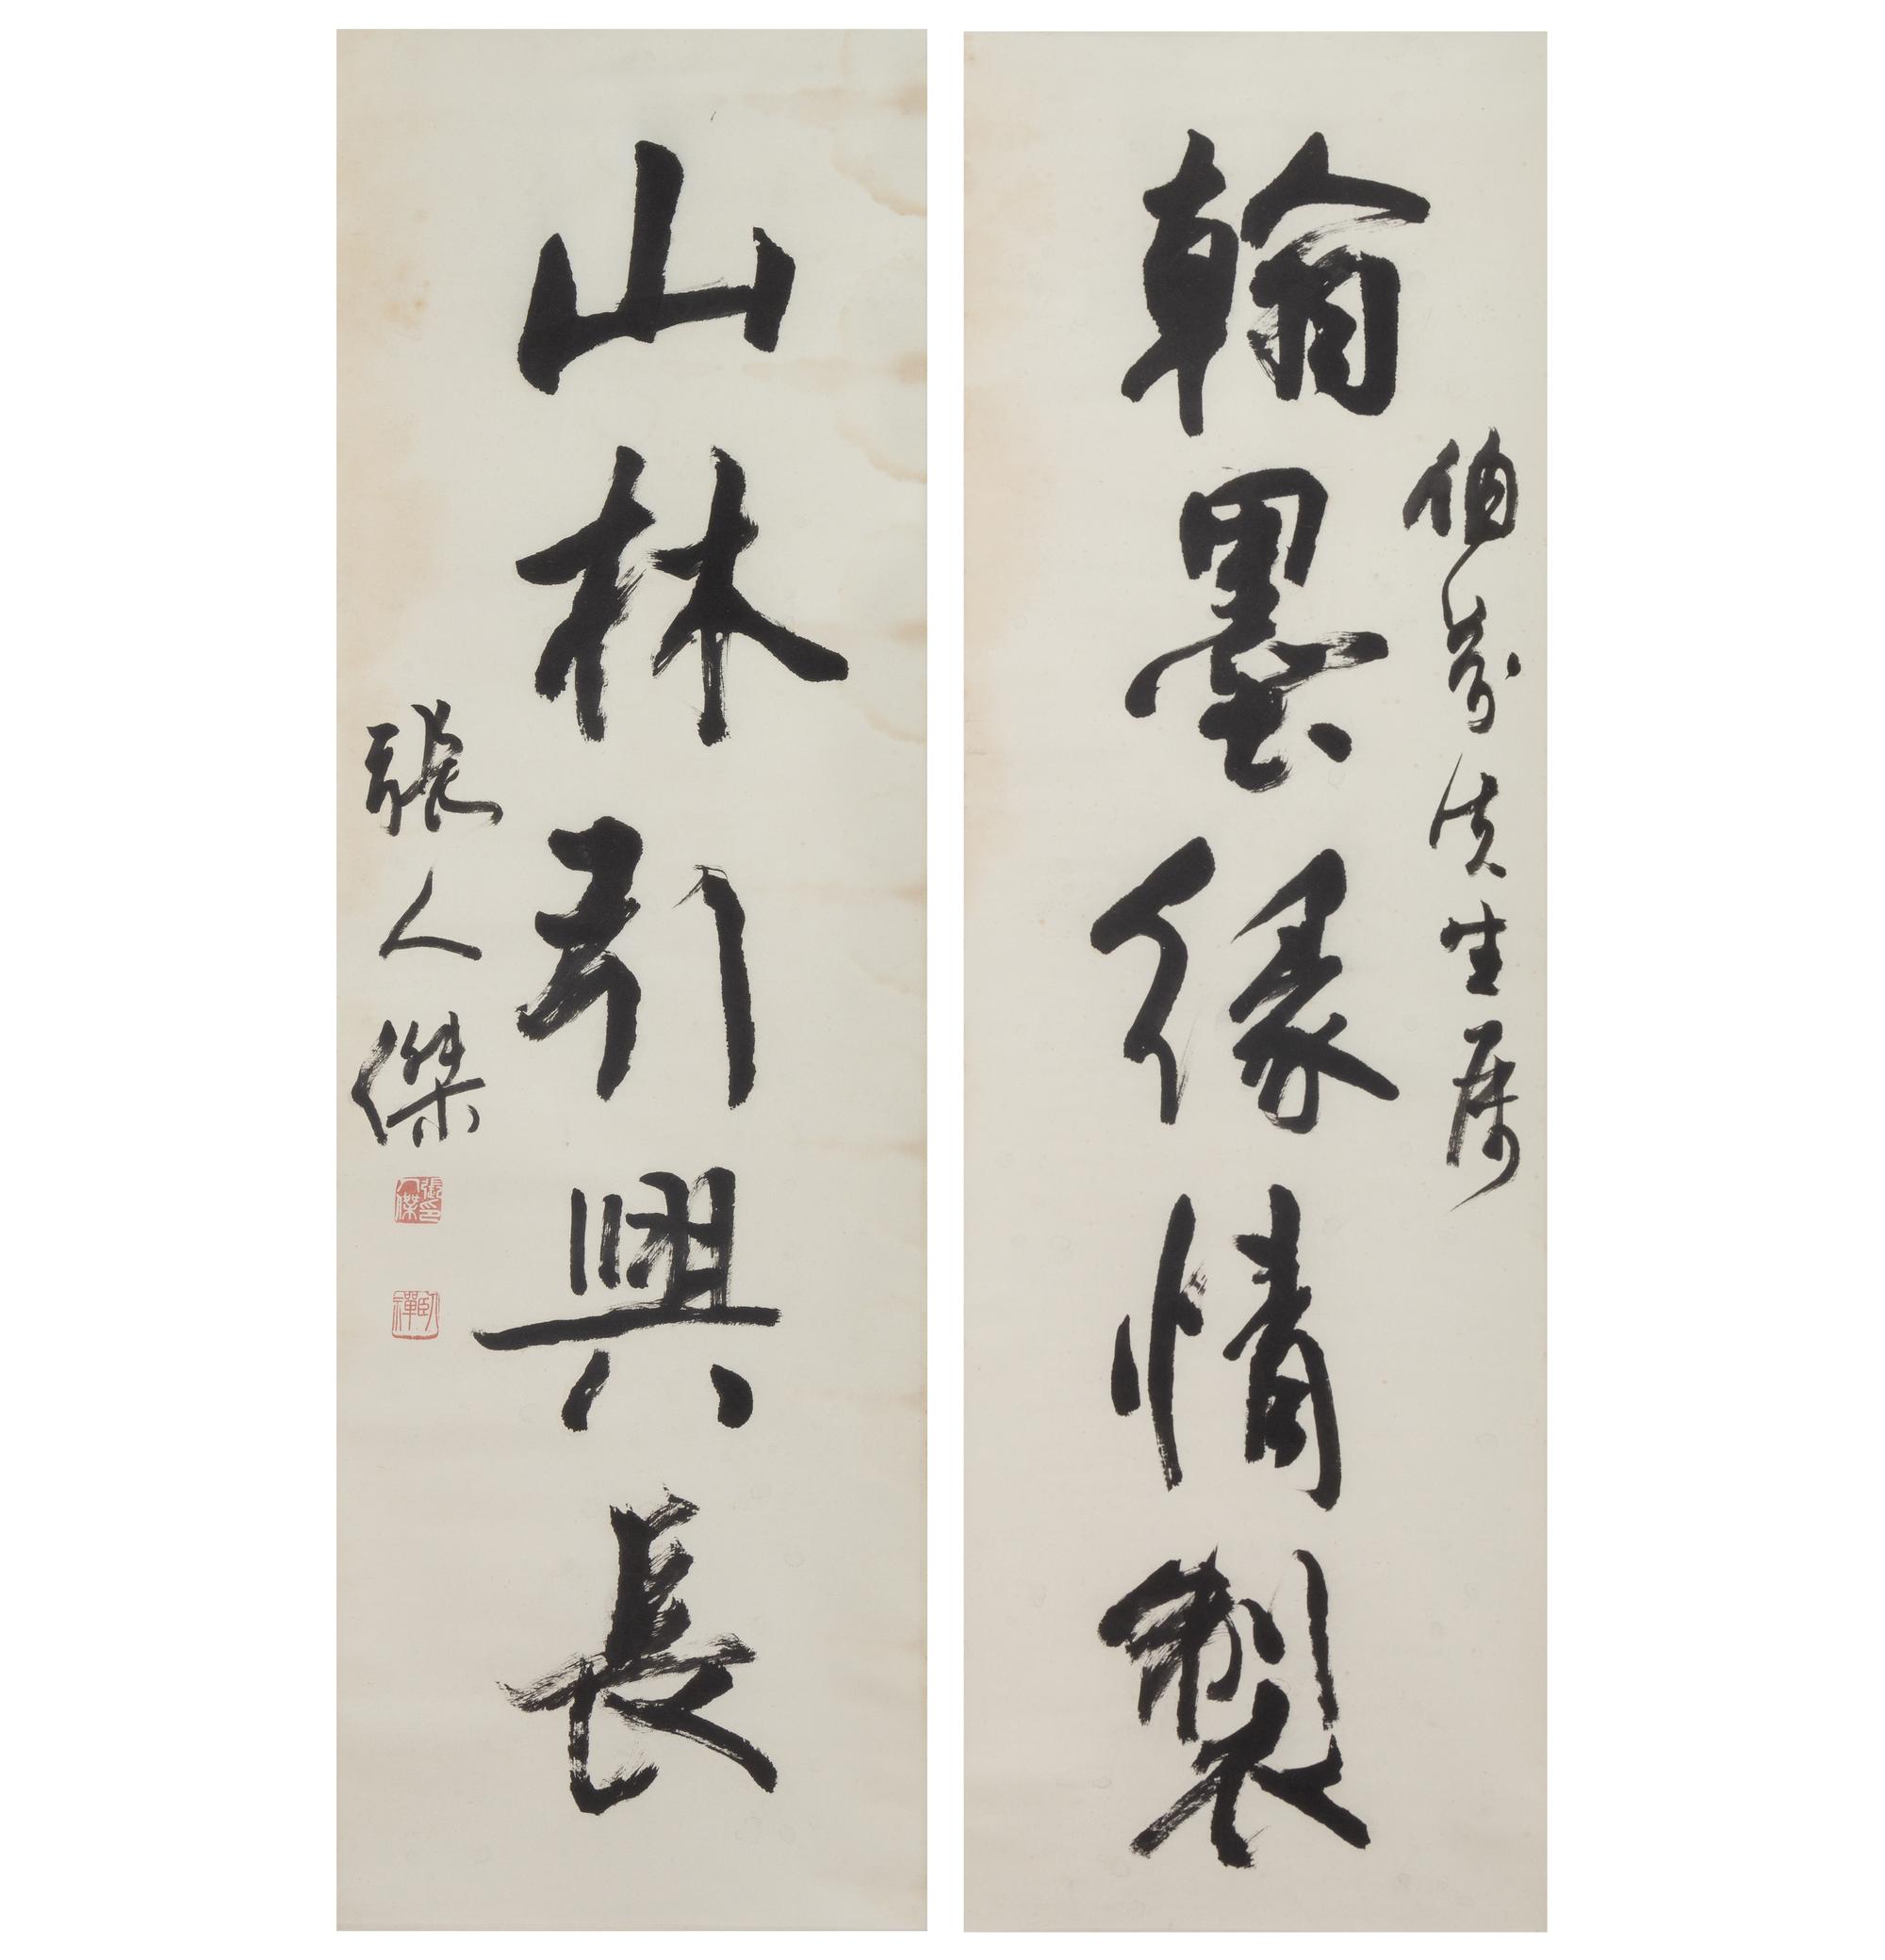 翰墨緣情製
伯先生屬
山林引興長
張人傑
張印人傑
臥禪